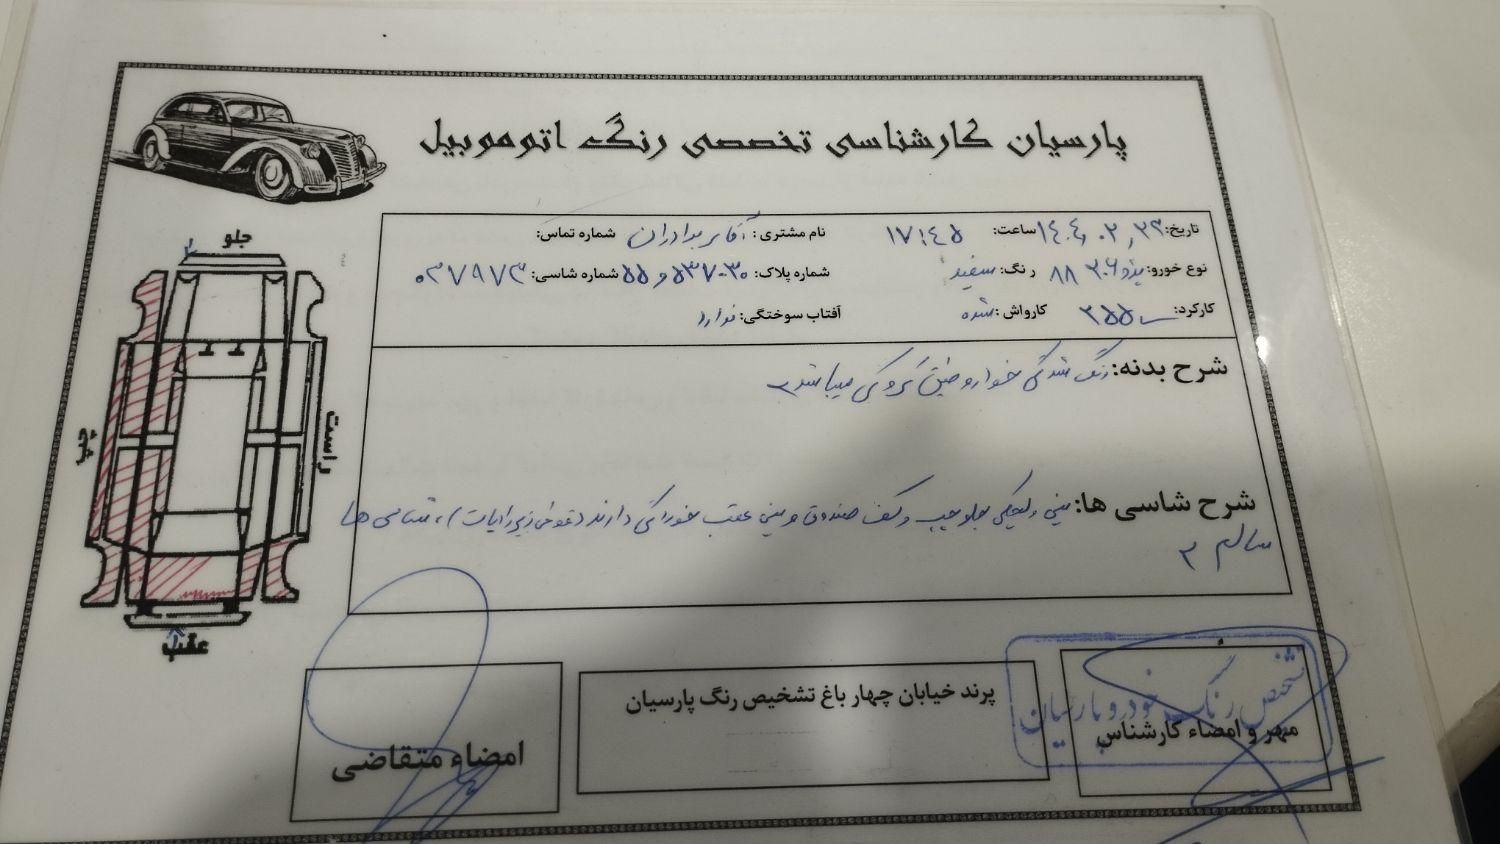 پارسیان کارشناسی تخصصی رنگ اتوموبیل
تاریخ: ۱۴۰۴٫۰۲٫۲۳ ساعت: ۱۷:۴۵ نام مشتری: آقای برادران شماره تماس:
نوع خورو: پژو ۲۰۶ ۸۸ رنگ: سفید شماره پلاک: شماره شاسی: ۰۳۷۹۷۳
کارکرد: کارواش: شده آفتاب سوختگی: ندارد
شرح بدنه: رنگ شدگی میباشد
شرح شاسی ها: سینی جلو چپ و کف صندوق و سینی عقب خوردگی دارند، شاسی ها
سالم
جلو
چپ
راست
عقب
مهر و امضاء کارشناس
تشخیص رنگ خودرو پارسیان
پرند خیابان چهار باغ تشخیص رنگ پارسیان
امضاء متقاضی